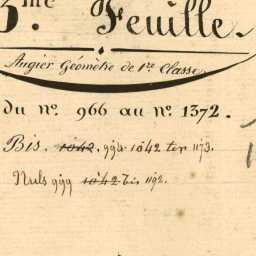 3.me Feuille.
Augier Géomètre de 1re Classe
du no. 966 au no. 1372.
Bis. 1042. 998. 1042 ter 1173.
Nuls 999 1042 bis 1192.